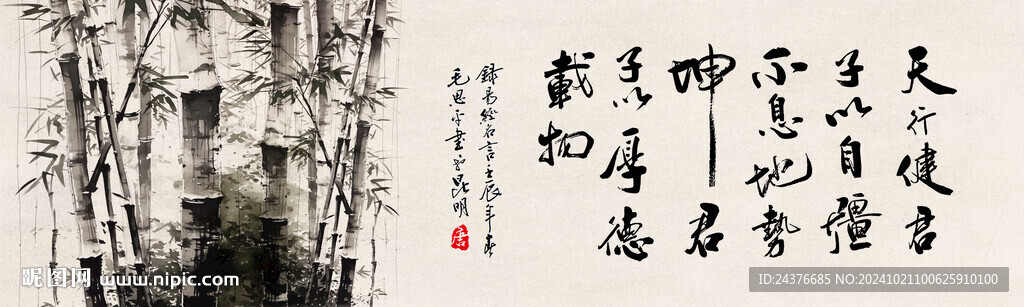 天行健君
子以自疆
不息地勢
坤君
子以厚德
載物
錄易經名言壬辰年春
毛思平書於昆明
昵图网 www.nipic.com
ID:24376685 NO:20241021100625910100